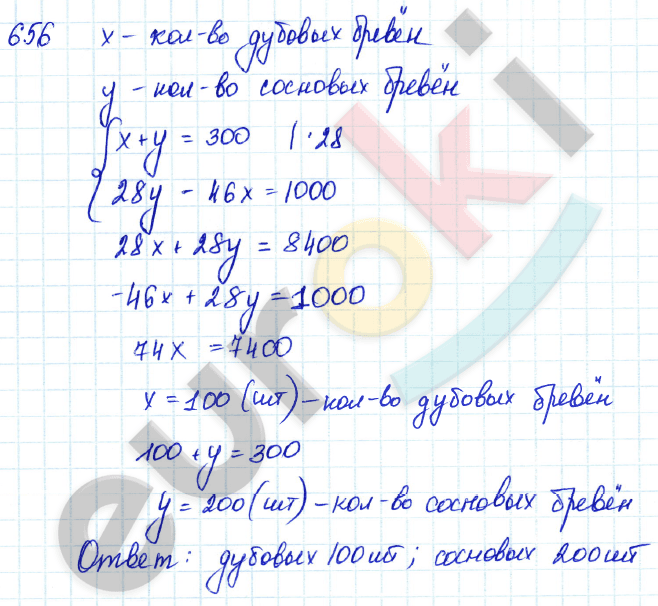 656 x - кол-во дубовых брёвен
y - кол-во сосновых бревён
{ x + y = 300 | · 28
28y - 46x = 1000
28x + 28y = 8400
-46x + 28y = 1000
74x = 7400
x = 100 (шт) - кол-во дубовых бревён
100 + y = 300
y = 200 (шт) - кол-во сосновых бревён
Ответ: дубовых 100 шт; сосновых 200 шт
euroki